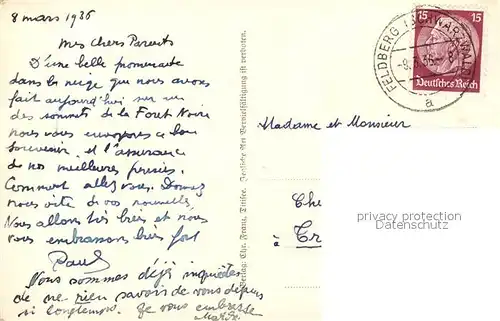 8 mars 1936
Mes chers Parents
D'une belle promenade
dans la neige que nous avons
fait aujourd'hui sur un
des sommets de la Foret Noire
nous vous envoyons ce bon
souvenir et l'assurance
de nos meilleures pensées.
Comment allez vous. Donnez
nous vite de vos nouvelles.
Nous allons très bien et nous
vous embrassons bien fort
Paul
Nous sommes déjà inquiets
de ne rien savoir de vous depuis
si longtemps. Je vous embrasse
Verlag: Chr. Franz, Titisee. Jegliche Art Vervielfältigung ist verboten.
FELDBERG (SCHWARZWALD)
-8.3.36
a
15 15
Deutsches Reich
Madame et Monsieur
Che
à Tr
privacy protection
Datenschutz